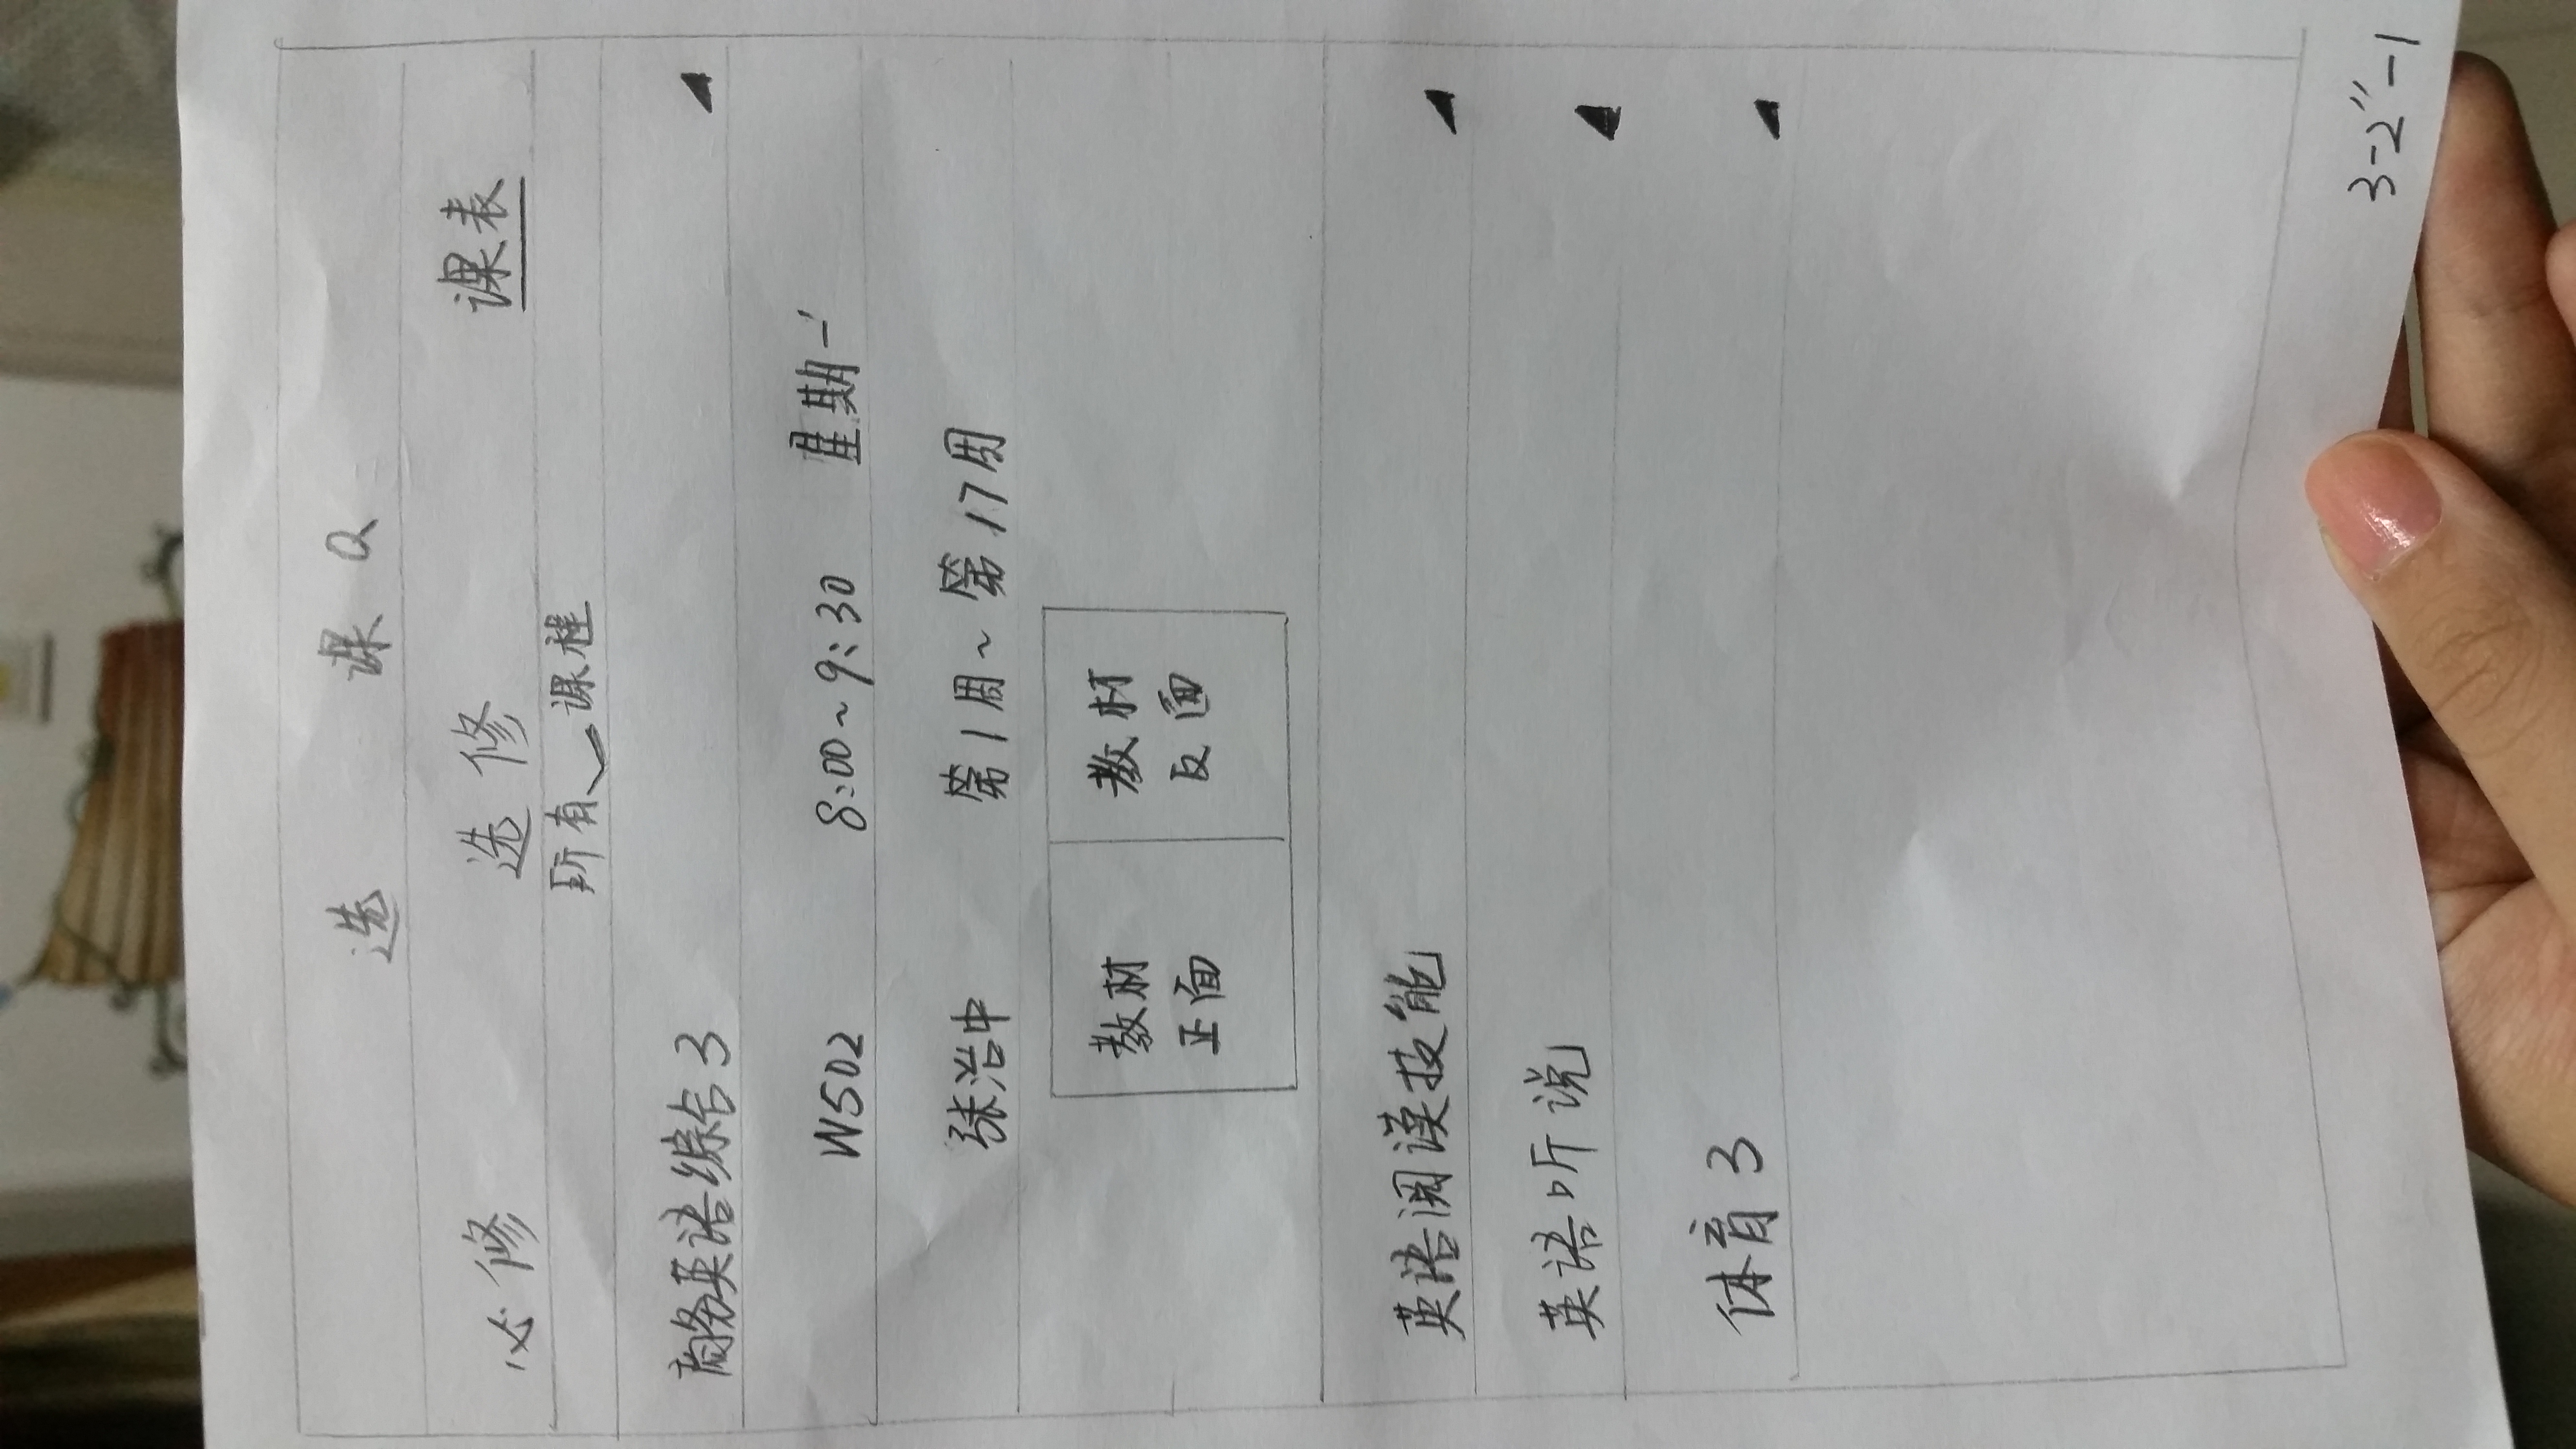 选 课 Q
必修 选修 课表
所有 课程
商务英语综合3
W502 8:00~9:30 星期一
张治中 第1周~第17周
教材 教材
正面 反面
英语阅读技能
英语听说
体育3
3-2"-1